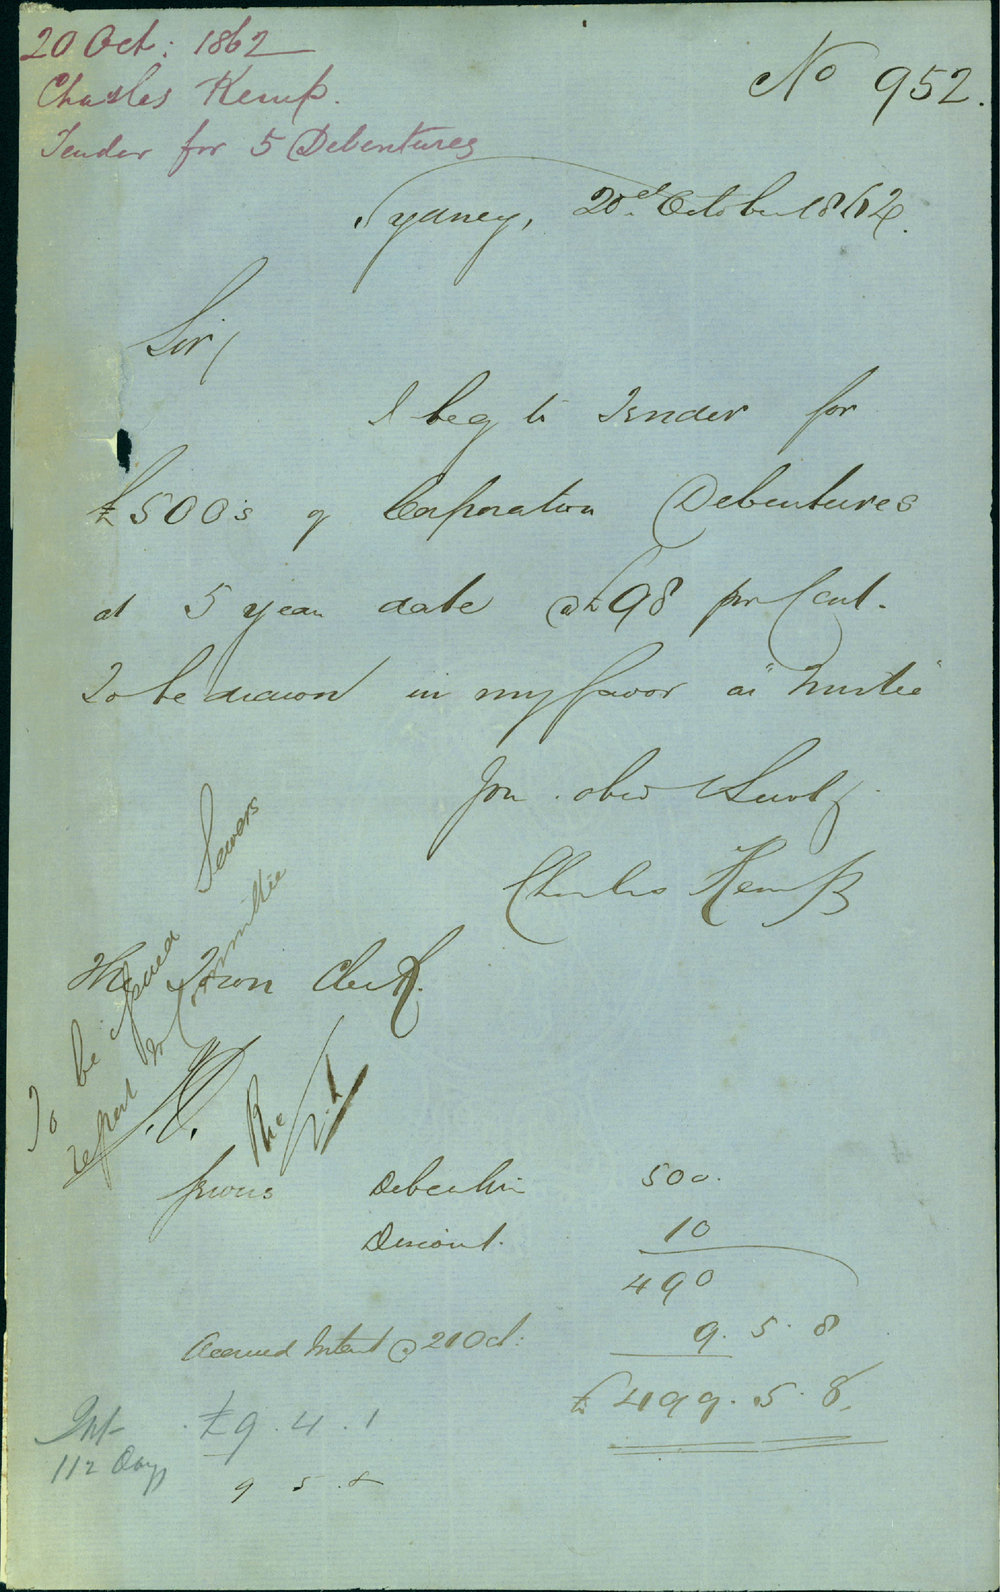 20 Oct: 1862
Charles Kemp.
Tender for 5 Debentures
No 952.
Sydney, 20th October 1862.
Sir/
I beg to Tender for
£500's of Corporation Debentures
at 5 year date @ £98 per Cent.
To be drawn in my favor as "Trustee"
You. obed Servt
Charles Kemp
The Town Clerk.
To be opened Sewers
report to Committee
Debenture 500.
Discount. 10
490
Accrued Interest @ 21 Oct: 9. 5. 8
£ 499. 5. 8.
Int £9. 4. 1
112 Days
9 5. 8